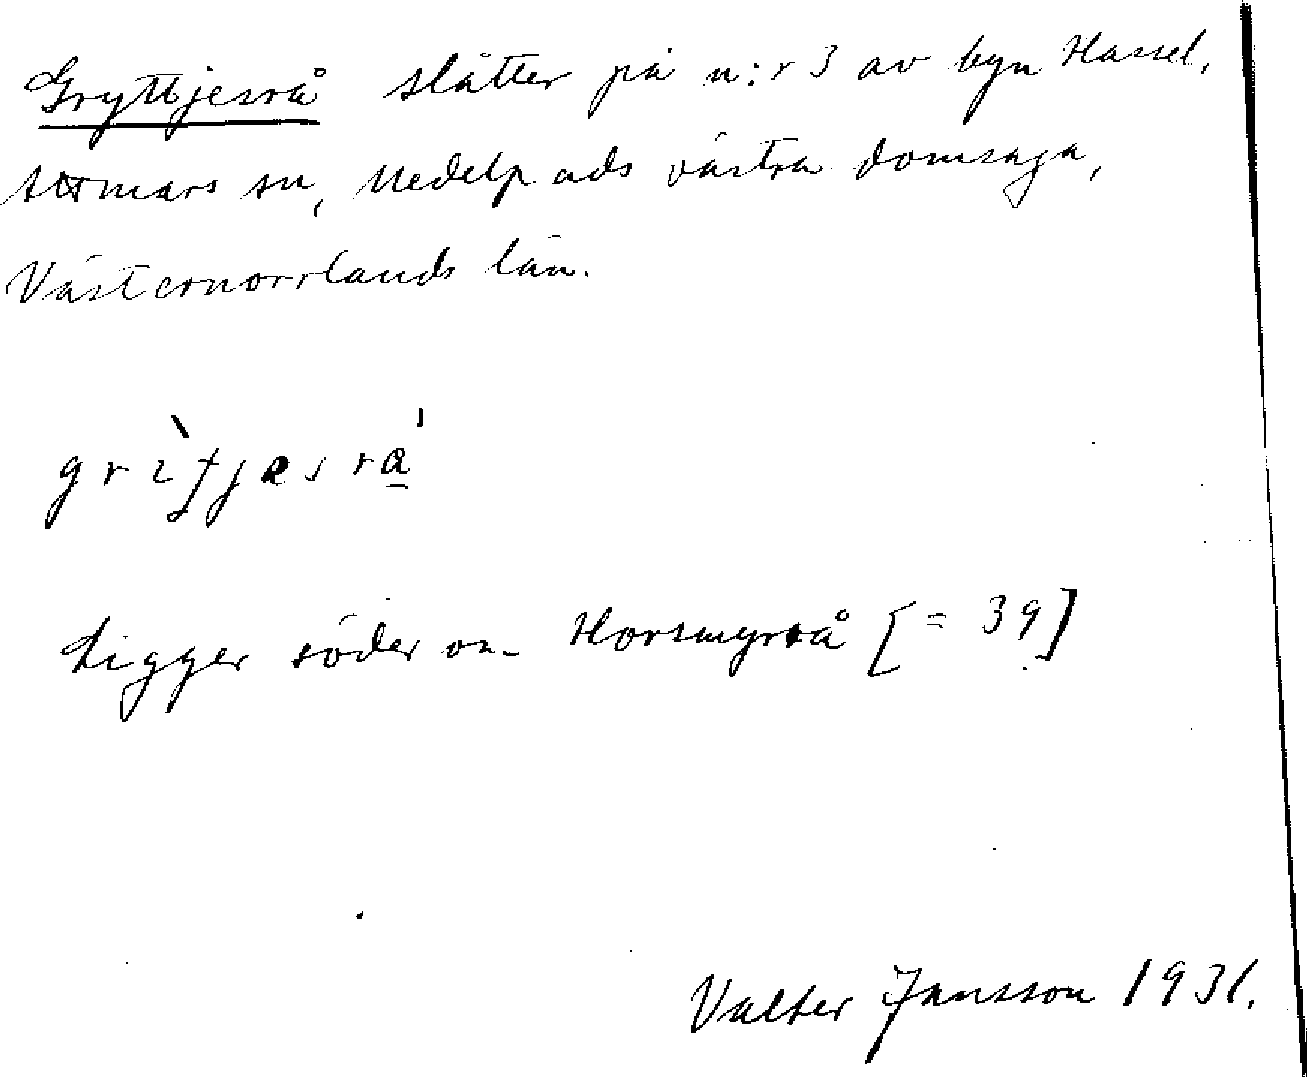 Gryttjesrå slåtter på n:r 3 av byn Hassel,
Attmars sn, Medelpads västra domsaga,
Västernorrlands län.
Ligger söder om Horsmyrrå [= 39]
Valter Jansson 1931.